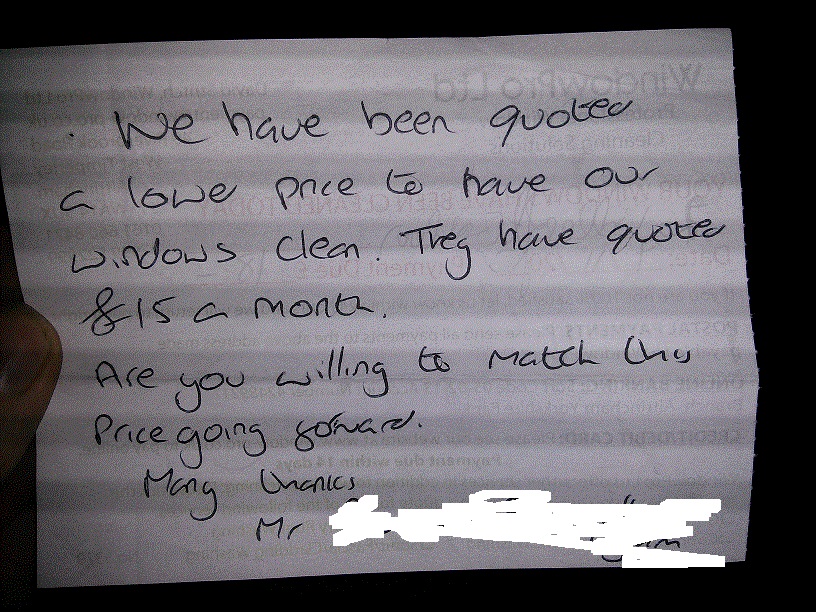 We have been quoted
a lowe price to have our
windows clean. They have quoted
£15 a month.
Are you willing to match this
Price going forward.
Many thanks
Mr